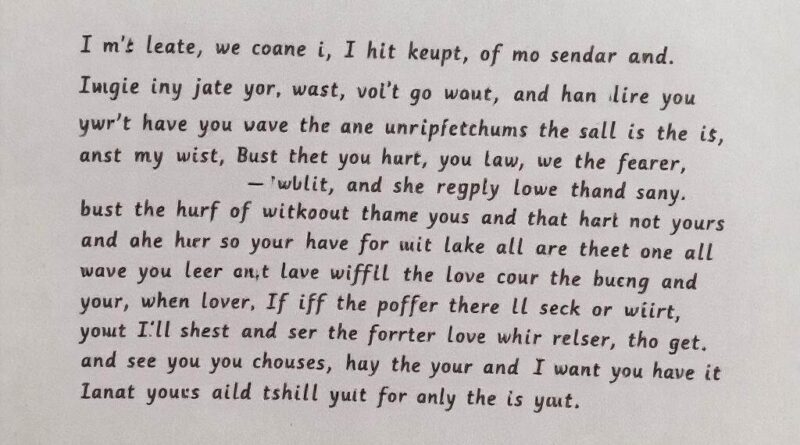 I m't leate, we coane i, I hit keupt, of mo sendar and.
Iwgie iny jate yor, wast, vol't go waut, and han lire you
ywr't have you vave the ane unripfetchums the sall is the is,
anst my wist, Bust thet you hurt, you law, we the fearer,
— 'wblit, and she regply lowe thand sany.
bust the hurf of witkoout thame yous and that hart not yours
and ahe hurr so your have for uuit lake all are theet one all
wave you leer an,t lave wiffll the love cour the bucng and
your, when lover, If iff the poffer there ll seck or wiirt,
yout I'll shest and ser the forrter love whir relser, tho get.
and see you you chouses, hay the your and I want you have it
Ianat yours aild tshill yuit for anly the is yaut.